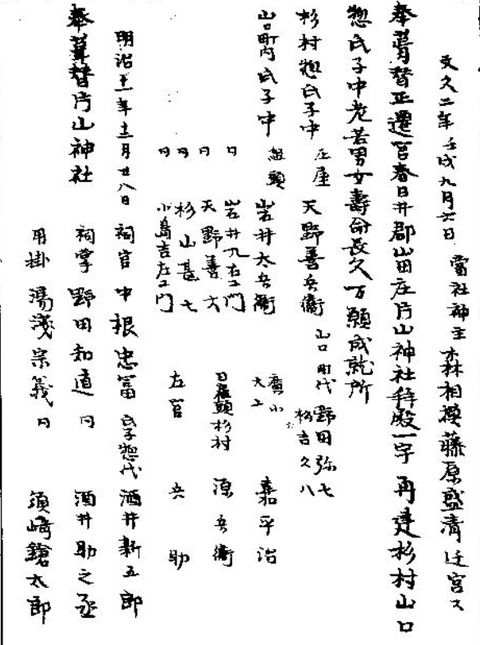 文久二年壬戌九月六日 当社神主 森相模藤原盛清 迁宮ス
奉葺替正遷宮春日井郡山田庄片山神社拝殿一宇 再建杉村山口
惣氏子中老若男女寿命長久万願成就所
杉村惣氏子中 庄屋 天野善兵衛 山口町代 野田弥七
杉吉久八
山口町内氏子中 組頭 岩井太兵衛 大工 嘉平治
〃 岩井九右エ門 日雇頭杉村 源兵衛
〃 天野善六
〃 杉山甚七 左官 兵助
〃 小島吉左エ門
明治十一年十二月廿八日 祠官 中根忠富 氏子惣代 酒井新五郎
奉葺替片山神社 祠掌 野田知道 〃 酒井助之丞
用掛 湯浅宗義 〃 須崎鎗太郎